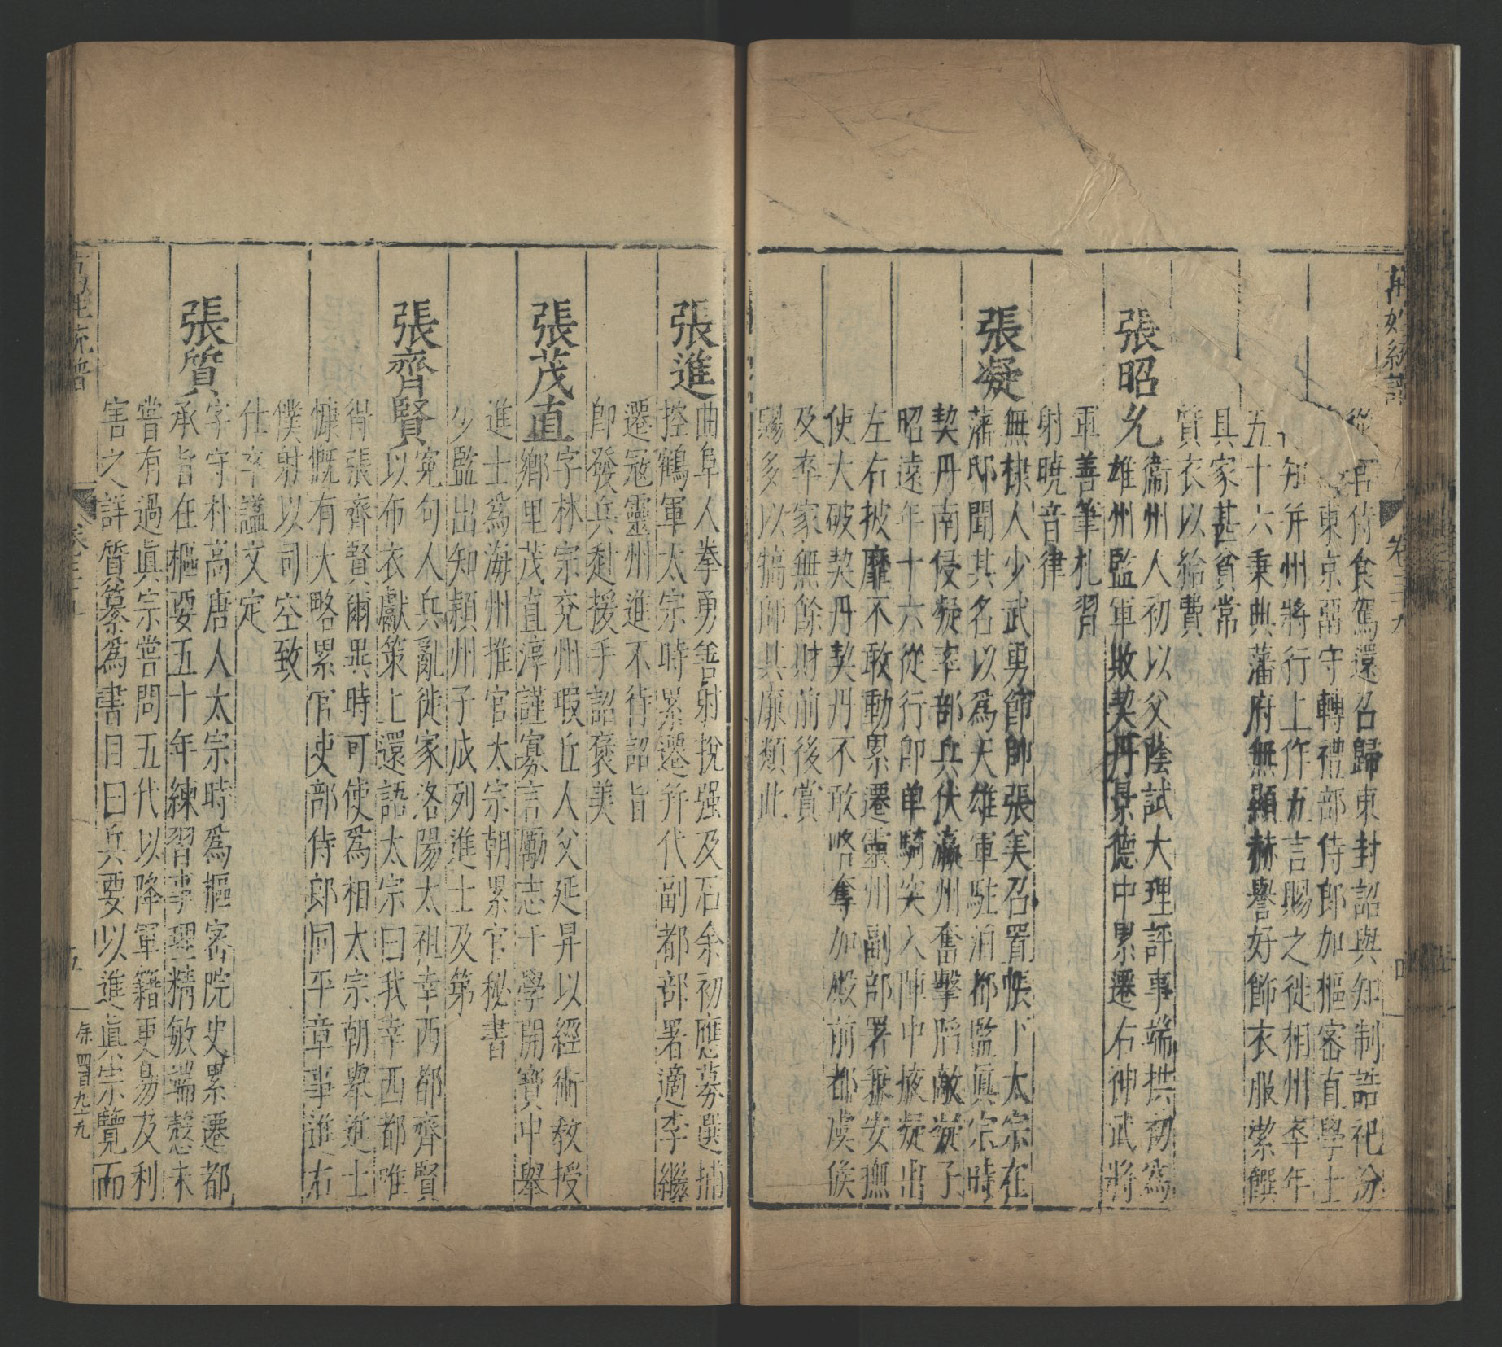 萬姓統譜
卷三十九
從官侍食駕還召歸東封詔與知制誥祀汾
東京留守轉禮部侍郎加樞密直學士
知并州將行上作五言賜之徙相州卒年
五十六秉典藩府無顯赫譽好飾衣服潔饌
具家甚貧常
質衣以給費
張昭允
衞州人初以父蔭試大理評事端拱初為
雄州監軍敗契丹景德中累遷右神武將
軍善筆札習
射曉音律
張凝
無棣人少武勇節帥張美召置帳下太宗在
藩邸聞其名以為天雄軍駐泊都監真宗時
契丹南侵凝率部兵伏瀛州奮擊陷敵凝子
昭遠年十六從行即单騎突入陣中掖凝出
左右披靡不敢動累遷靈州副部署兼安撫
使大破契丹契丹不敢略奪加殿前都虞侯
及卒家無餘財前後賞
賜多以犒師其廉類此
張進
曲阜人拳勇善射挽强及石余初應募選捕
控鶴軍太宗時累遷并代副都部署適李繼
遷寇靈州進不待詔旨
即發兵赴援手詔褒美
張茂直
字林宗兖州瑕丘人父延昇以經術教授
鄉里茂直淳謹寡言勵志于學開寶中舉
進士為海州推官太宗朝累官秘書
少監出知頴州子成列進士及第
張齊賢
冤句人兵亂徙家洛陽太祖幸西都齊賢
以布衣獻策上還語太宗曰我幸西都唯
得張齊賢爾異時可使爲相太宗朝舉進士
慷慨有大略累官吏部侍郎同平章事進右
僕射以司空致
仕卒謚文定
張質
字守朴高唐人太宗時爲樞密院史累遷都
承旨在樞要五十年練習事理精敏端慤未
嘗有過真宗嘗問五代以降軍籍更易及利
害之詳質纂爲書目曰兵要以進真宗覽而